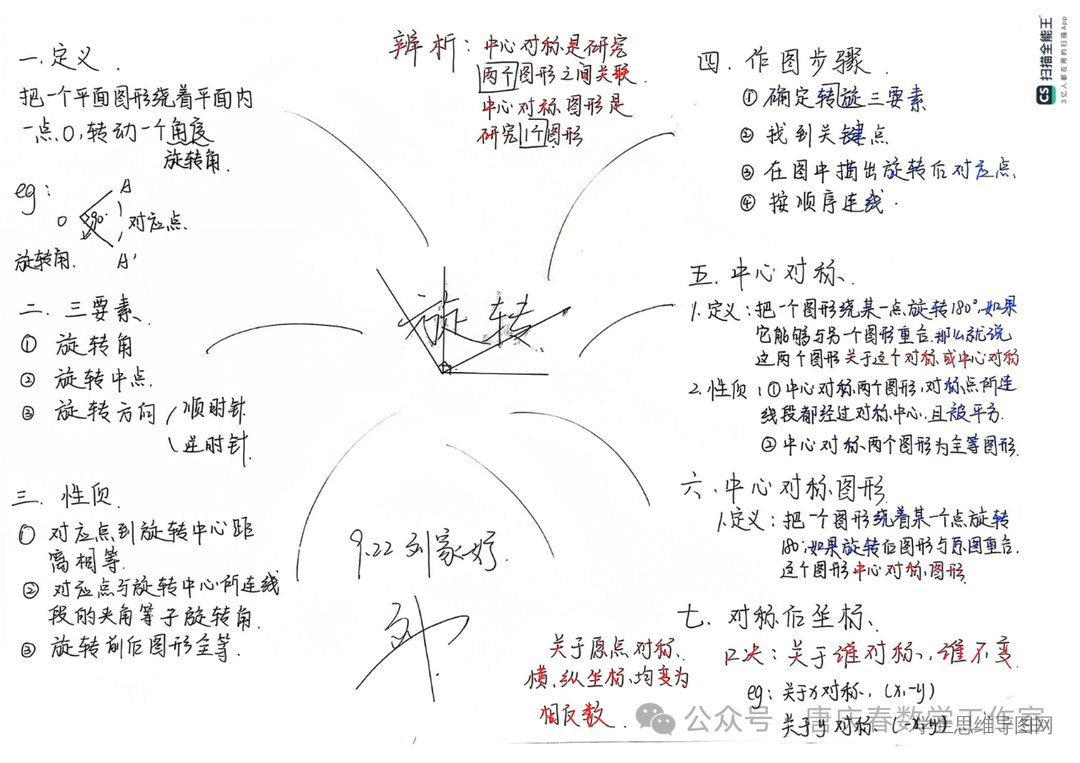 一. 定义.
把一个平面图形绕着平面内
一点O,转动一个角度
旋转角.
eg:
A
O
90°
对应点.
旋转角.
A'
二. 三要素.
① 旋转角
② 旋转中点.
③ 旋转方向
顺时针
逆时针.
三. 性质.
① 对应点到旋转中心距
离相等.
② 对应点与旋转中心所连线
段的夹角等于旋转角.
③ 旋转前后图形全等.
辨析: 中心对称是研究
两个图形之间关联.
中心对称图形是
研究1个图形
旋转
9.22 刘家好.
四. 作图步骤.
① 确定转旋三要素
② 找到关键点
③ 在图中描出旋转后对应点.
④ 按顺序连线.
五. 中心对称.
1. 定义:把一个图形绕某一点旋转180°,如果
它能够与另一个图形重合.那么就说
这两个图形关于这个对称或中心对称
2. 性质:①中心对称两个图形,对称点所连
线段都经过对称中心,且被平方.
②中心对称两个图形为全等图形.
六. 中心对称图形.
1. 定义:把一个图形绕着某一个点旋转
180°,如果旋转后图形与原图重合.
这个图形中心对称图形.
七. 对称后坐标.
口决:关于谁对称,谁不变.
eg: 关于x对称, (x,-y)
关于y对称. (-x,y)
关于原点对称、
横、纵坐标,均变为
相反数.
公众号 · 唐庄春数学工作室
学生思维导图网
CS 扫描全能王
3亿人都在用的扫描App